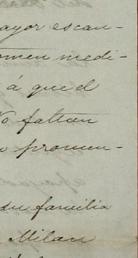 ayor escan-
omen medi-
á que el
o faltan
o promen-
su familia
Milan